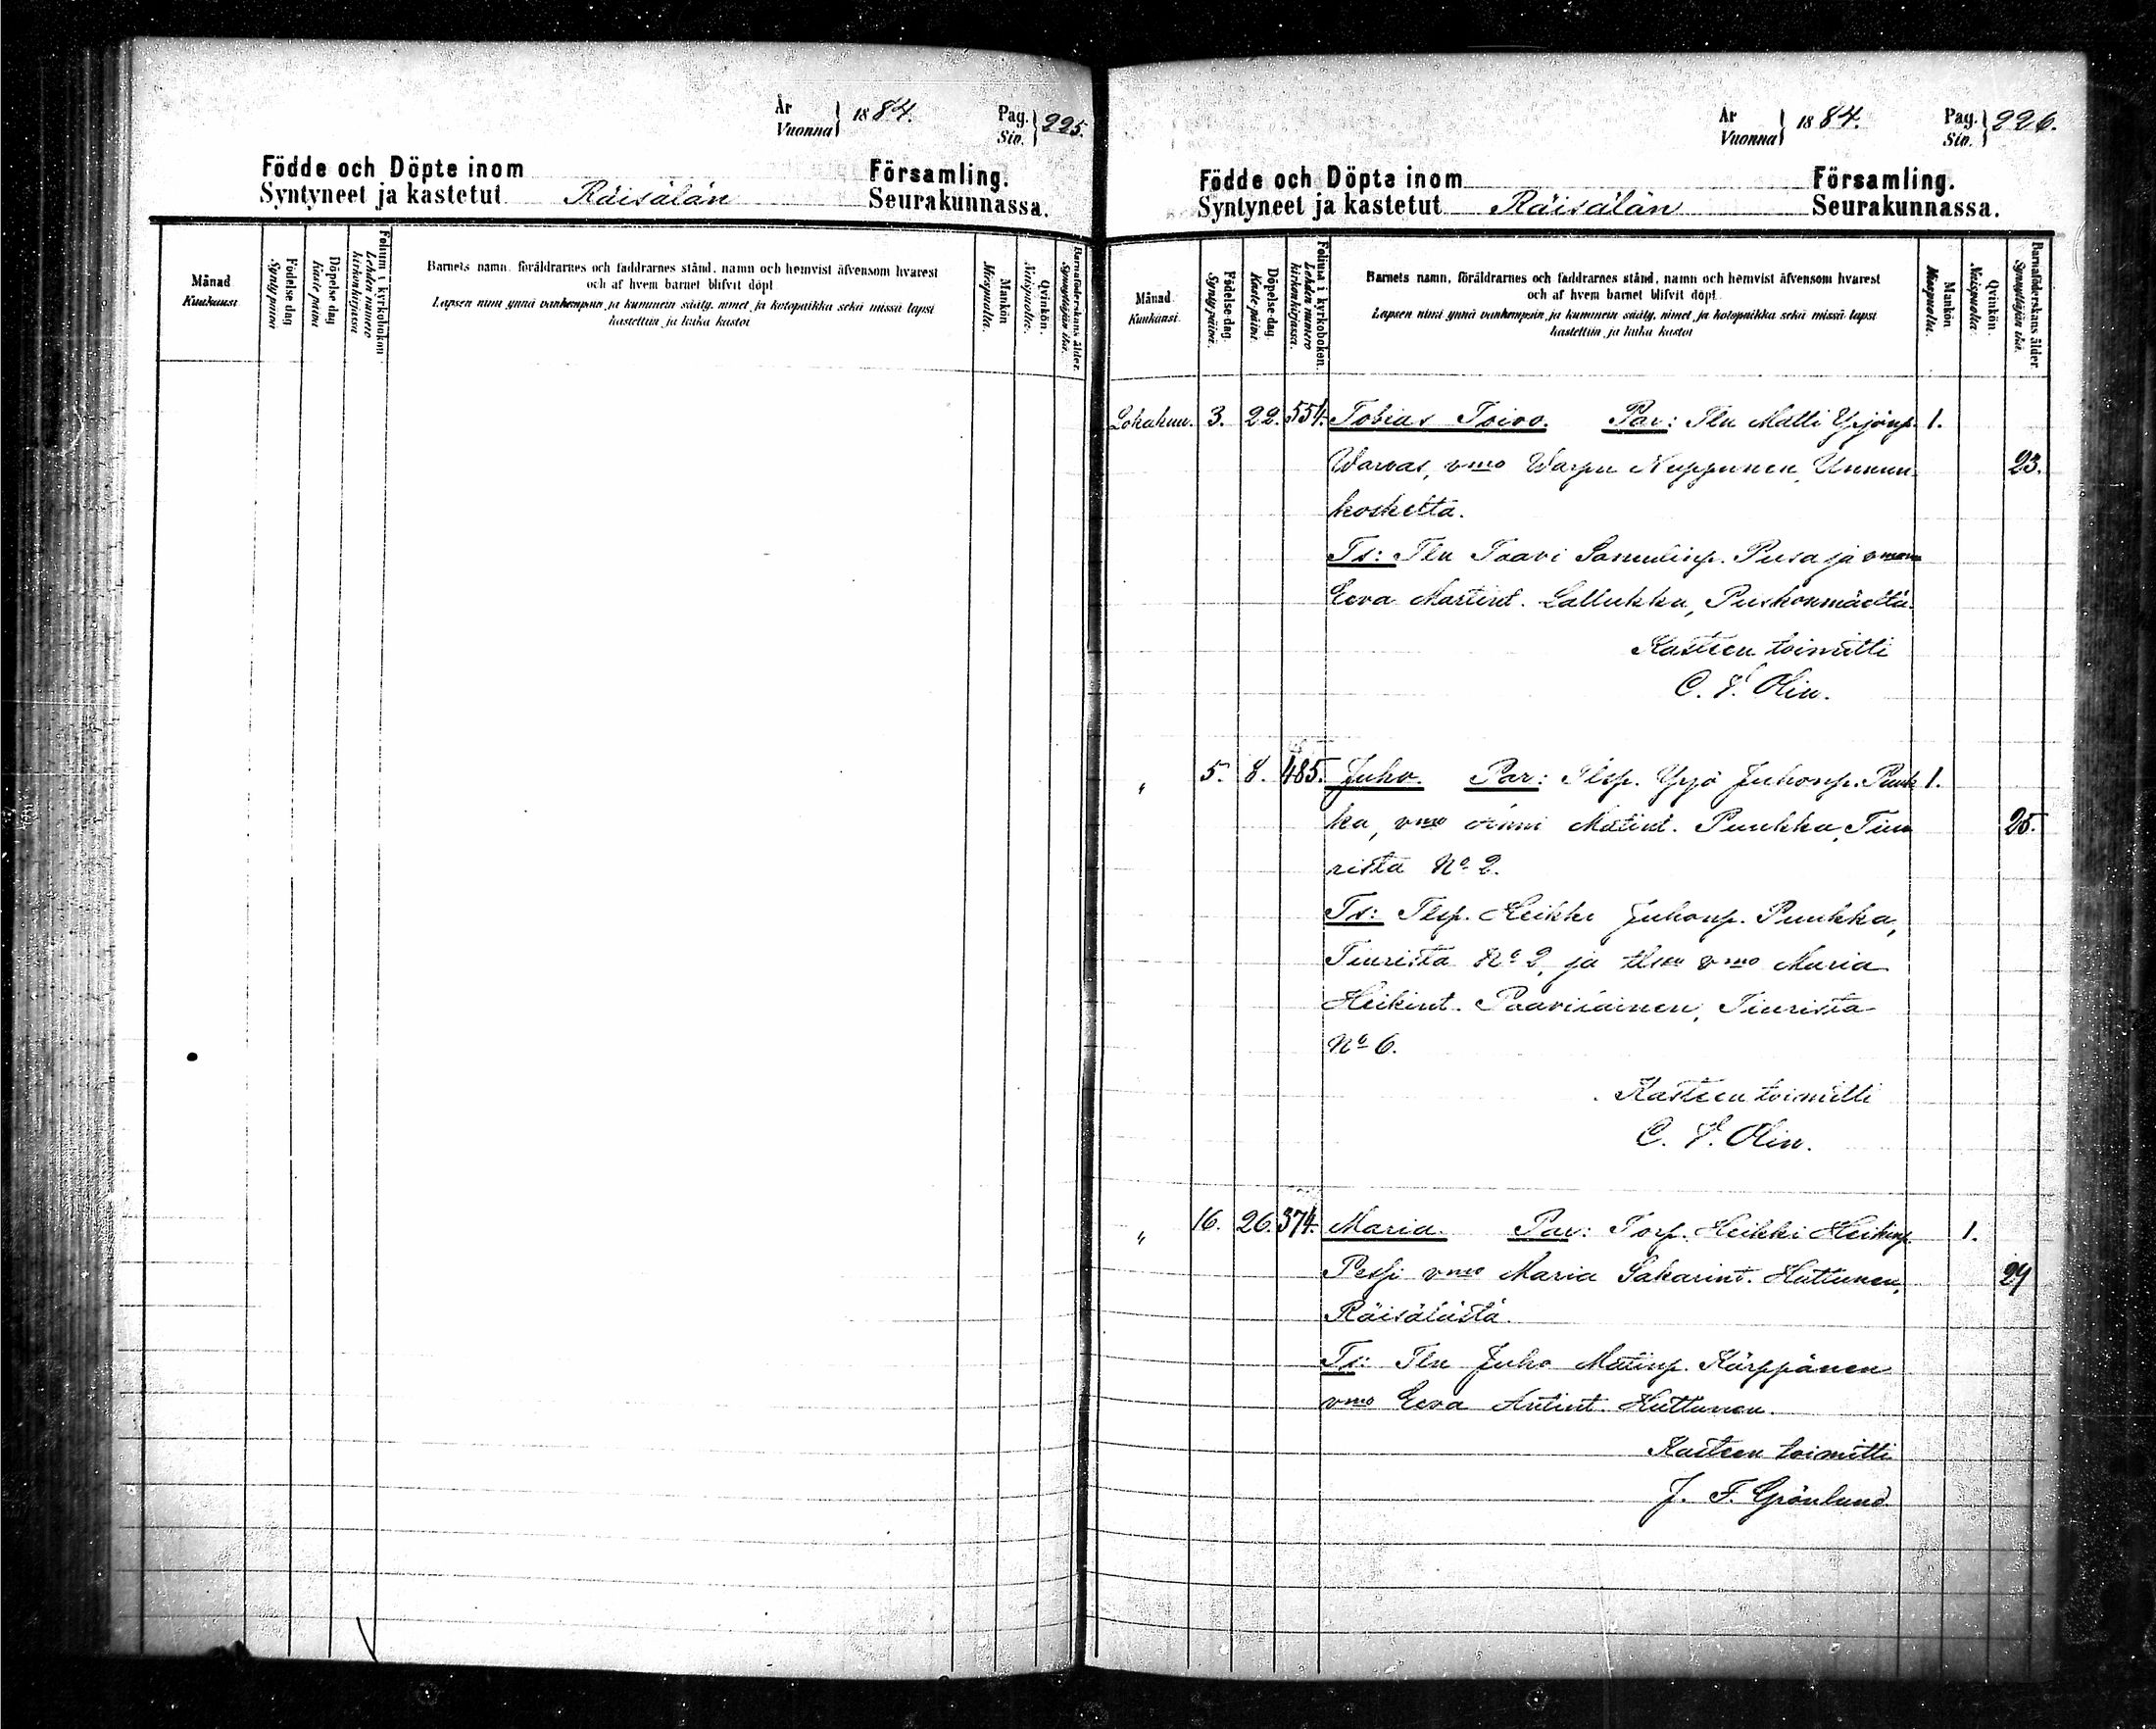 År
Vuonna } 1884.
Pag.
Siv. } 225.
Födde och Döpte inom Församling.
Syntyneet ja kastetut Räisälän Seurakunnassa.
Månad
Kuukausi
Födelse dag
Synty päivä
Döpelse dag
Kaste päivä
Folium i kyrkoboken
Lehden numero kirkonkirjassa
Barnets namn, föräldrarnes och faddrarnes stånd, namn och hemvist äfvensom hvarest
och af hvem barnet blifvit döpt
Lapsen nimi ynnä vanhempain ja kummein sääty, nimet ja kotopaikka sekä missä lapsi
kastettiin ja kuka kastoi
Mankön
Miespuolia.
Qvinkön.
Naispuolia.
Barnaföderskans ålder.
Synnyttäjän ikä.
År
Vuonna } 1884.
Pag.
Siv. } 226.
Födde och Döpte inom Församling.
Syntyneet ja kastetut Räisälän Seurakunnassa.
Månad
Kuukausi.
Födelse-dag.
Synty päivä.
Döpelse-dag.
Kaste-päivä.
Folium i kyrkoboken.
Lehden numero kirkonkirjassa.
Barnets namn, föräldrarnes och faddrarnes stånd, namn och hemvist äfvensom hvarest
och af hvem barnet blifvit döpt.
Lapsen nimi ynnä vanhempain ja kummein sääty, nimet ja kotopaikka sekä missä lapsi
kastettiin ja kuka kastoi
Mankön
Miespuolia.
Qvinkön.
Naispuolia.
Barnaföderskans ålder
Synnyttäjän ikä.
Lokakuu. 3. 22. 554. Tobias Toivo. Par: Tln Matti Yrjönp. 1.
Warvas, vmo Warpu Nuppunen, Unnun- 23.
koskelta.
Ts: Tln Taavi Samulinp. Pusa ja
Eeva Martint. Lallukka, Puskonmäeltä.
Kasteen toimitti
C. F. Olin.
" 5. 8. 485. Juho. Par: Tlsp. Yrjö Juhonp. Puuk 1.
ka, vmo Anni Matint. Puukka, Tiu 25.
rista No 2.
Ts: Tlsp. Heikki Juhonp. Puukka,
Tiurista No 2, ja vmo Maria
Heikint. Paavilainen, Tiurista
No 6.
Kasteen toimitti
C. F. Olin.
" 16. 26. 374. Maria. Par: Torp. Heikki Heikinp. 1.
Pessi vmo Maria Sakarint. Huttunen, 29
Räisälästä.
Ts: Tln Juho Matinp. Kärppänen
vmo Eeva Antint. Huttunen.
Kasteen toimitti
J. F. Grönlund